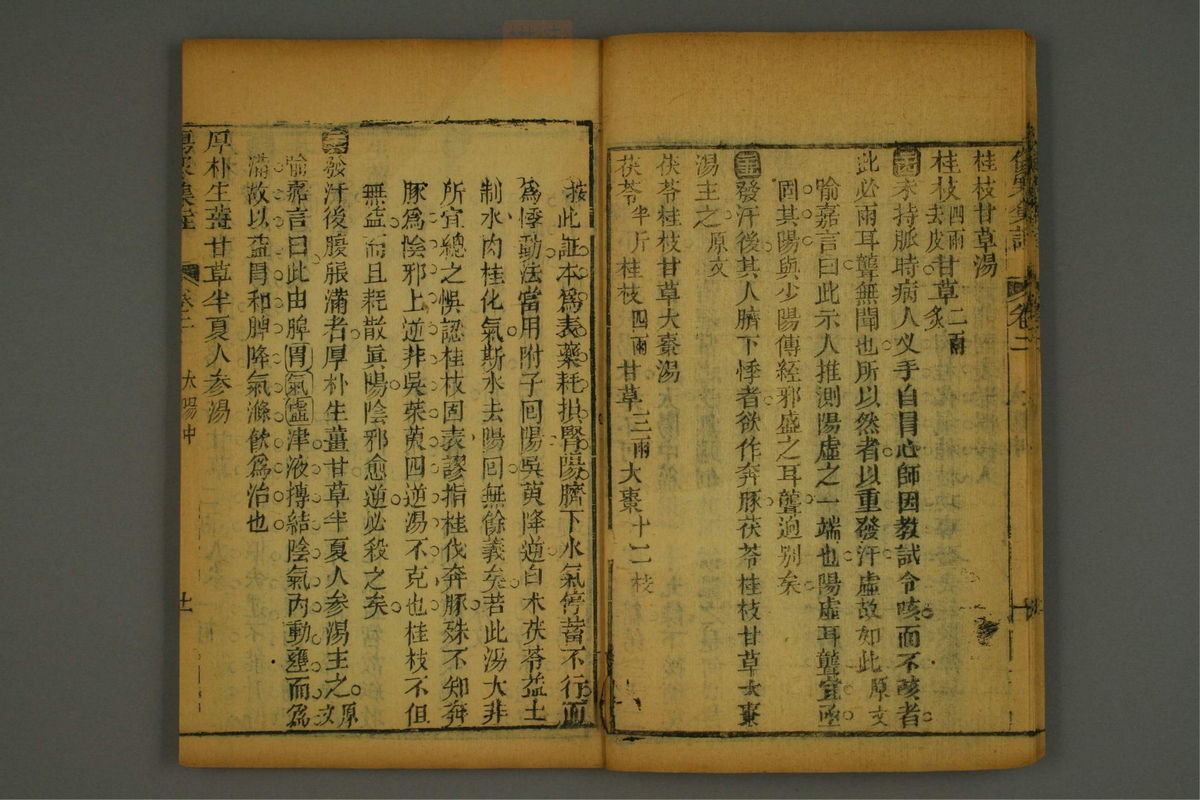 桂枝甘草湯
桂枝四兩去皮甘草二兩炙
未持脈時病人叉手自冒心師因教試令咳而不咳者
此必兩耳聾無聞也所以然者以重發汗虛故如此原文
喻嘉言曰此示人推測陽虛之一端也陽虛耳聾宜亟
固其陽與少陽傳経邪盛之耳聾逈别矣
發汗後其人臍下悸者欲作奔豚茯苓桂枝甘草大棗
湯主之原文
茯苓桂枝甘草大棗湯
茯苓半斤桂枝四兩甘草三兩大棗十二枝
按此証本爲表藥耗損腎陽臍下水氣停蓄不行而
爲悸動法當用附子囘陽吳萸降逆白术茯苓益土
制水肉桂化氣斯水去陽囘無餘義矣若此湯大非
所宜總之悞認桂枝固表謬指桂伐奔豚殊不知奔
豚爲陰邪上逆非吳茱萸四逆湯不克也桂枝不但
無益而且耗散眞陽陰邪愈逆必殺之矣
發汗後腹脹滿者厚朴生薑甘草半夏人参湯主之原文
喻嘉言曰此由脾胃氣虛津液搏結陰氣内動壅而爲
滿故以益胃和脾降氣滌飲爲治也
厚朴生薑甘草半夏人参湯
集註 卷二 太陽中 十一